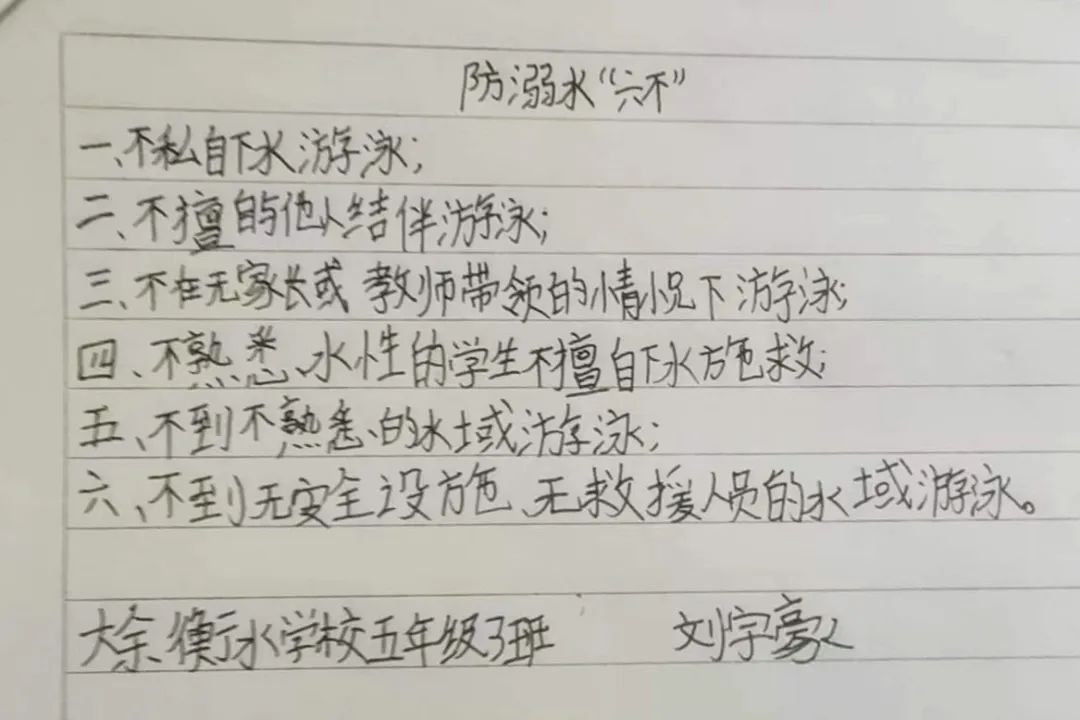 防溺水“六不”
一、不私自下水游泳;
二、不擅自与他人结伴游泳;
三、不在无家长或教师带领的情况下游泳;
四、不熟悉水性的学生不擅自下水施救;
五、不到不熟悉的水域游泳;
六、不到无安全设施、无救援人员的水域游泳。
大余衡水学校五年级3班 刘宇豪